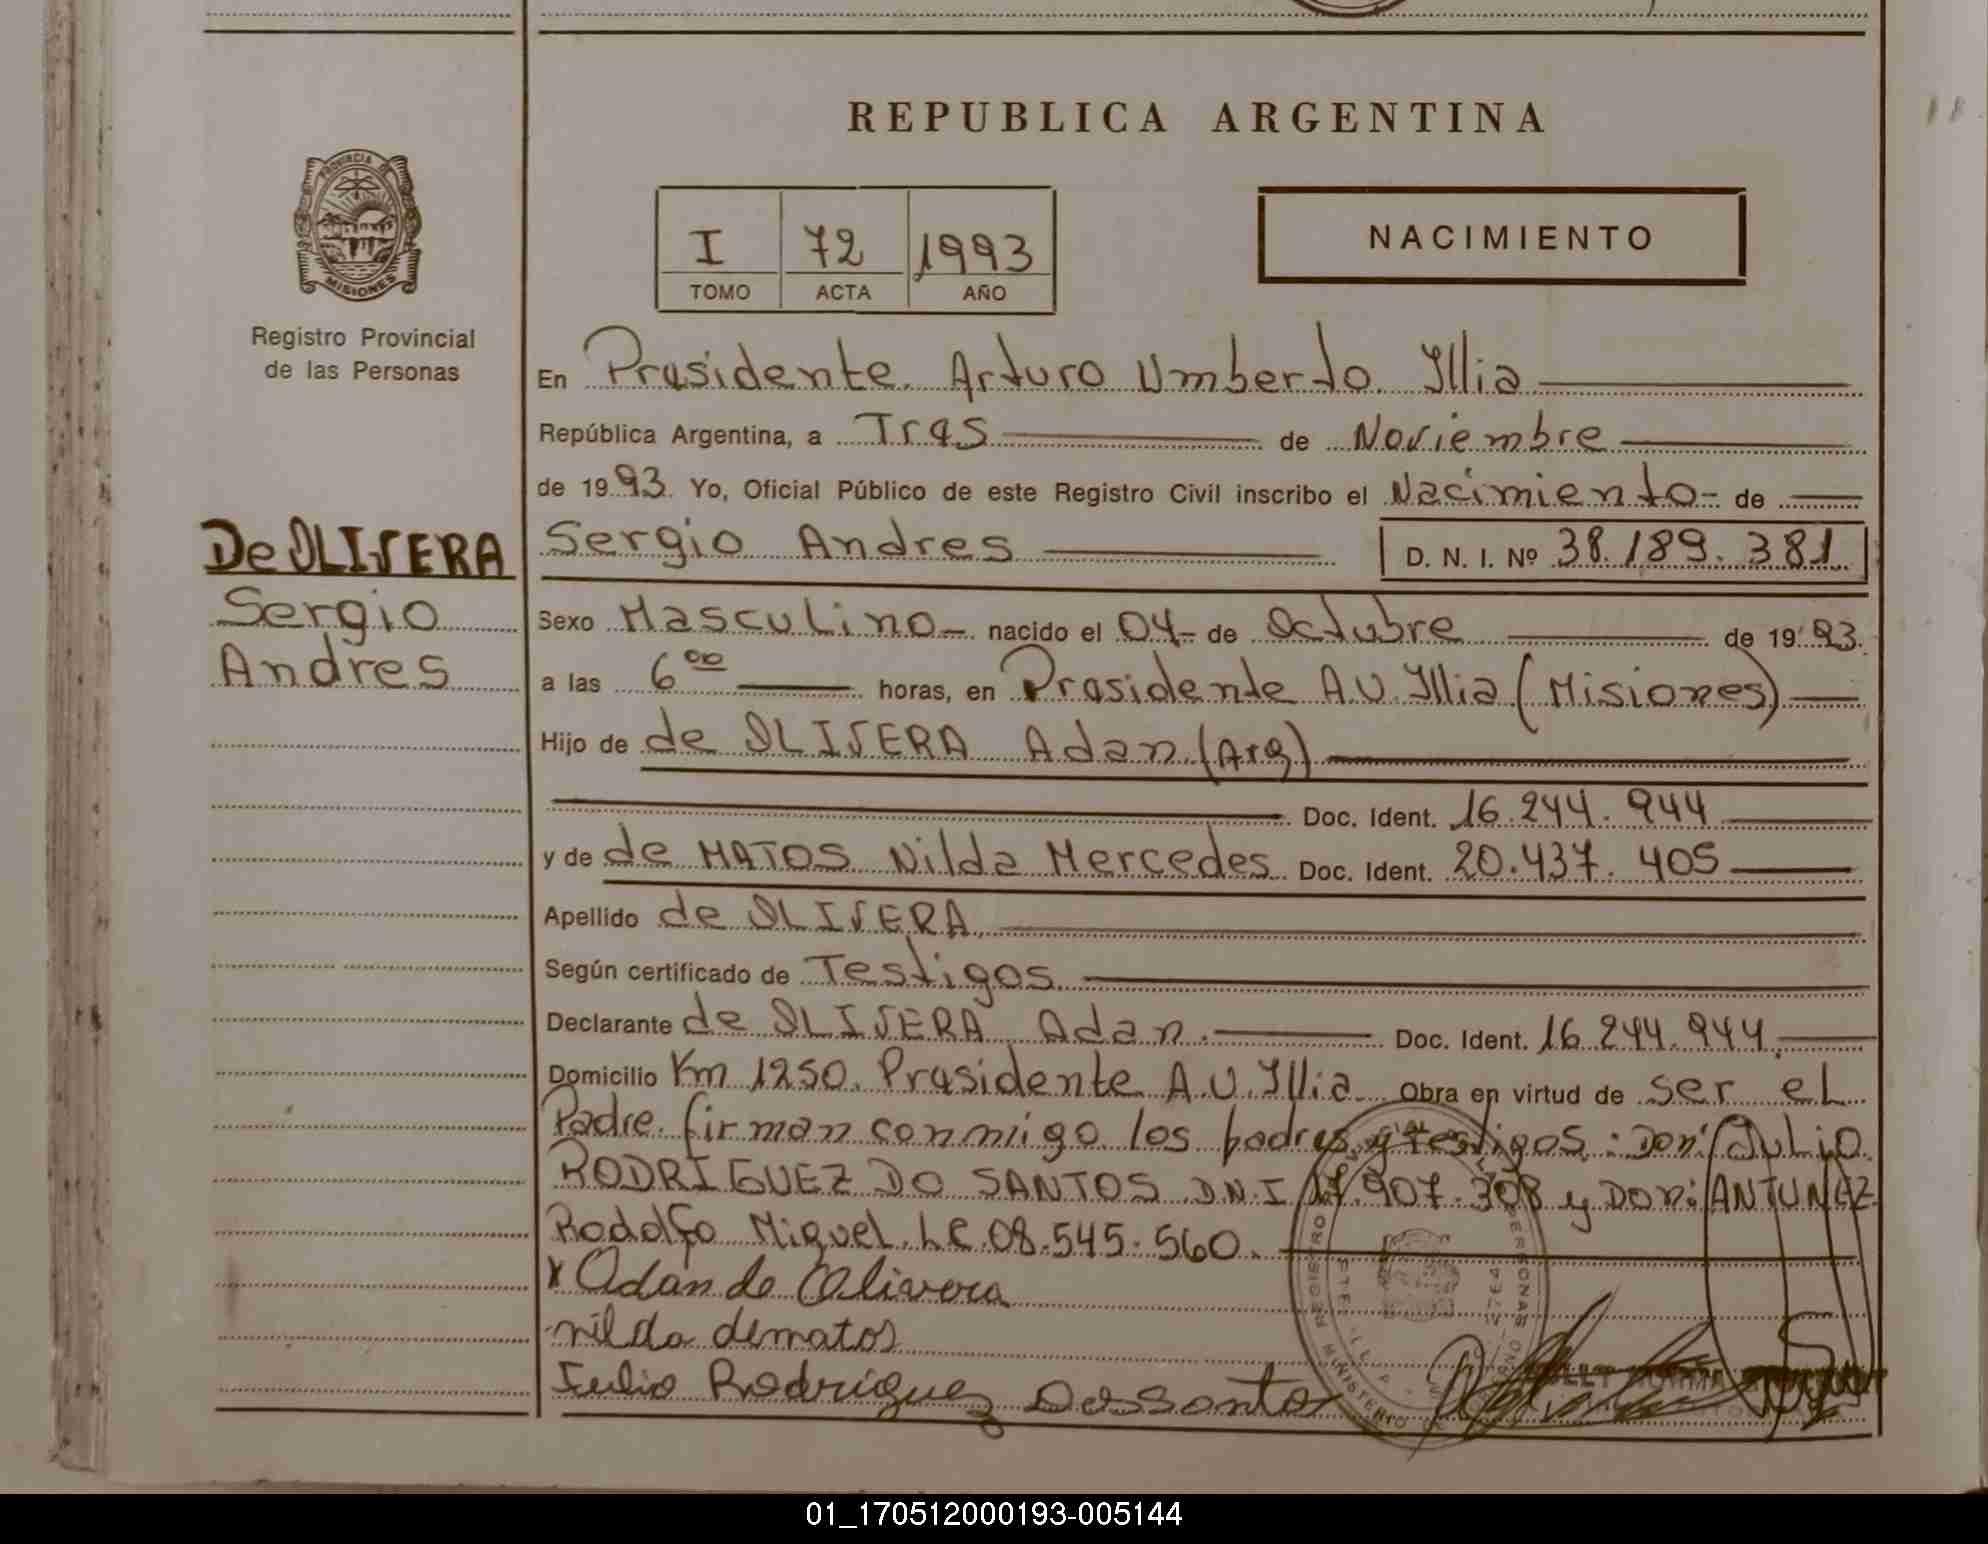 REPUBLICA ARGENTINA
PROVINCIA DE
MISIONES
Registro Provincial
de las Personas
I 72 1993
TOMO ACTA AÑO
NACIMIENTO
En Presidente Arturo Umberto Illia
República Argentina, a Tres de Noviembre
de 1993. Yo, Oficial Público de este Registro Civil inscribo el Nacimiento- de
De OLIVERA
Sergio
Andres
Sergio Andres D. N. I. Nº 38.189.381
Sexo Masculino- nacido el 04- de Octubre de 1993.
a las 6 00 horas, en Presidente A.U. Illia (Misiones)
Hijo de de OLIVERA Adan (Arg)
Doc. Ident. 16.244.944
y de de MATOS Nilda Mercedes Doc. Ident. 20.437.405
Apellido de OLIVERA
Según certificado de Testigos
Declarante de OLIVERA Adan. Doc. Ident. 16.244.944.
Domicilio Km 1250. Presidente A.U. Illia Obra en virtud de ser el
Padre. firman conmigo los padres y testigos: Don: JULIO
RODRIGUEZ DO SANTOS D.N.I 17.907.308 y Don: ANTUNEZ
Rodolfo Miguel. L.E. 08.545.560.
x Adan de Olivera
nilda dematos
Julio Rodriguez Dossantos
01_170512000193-005144